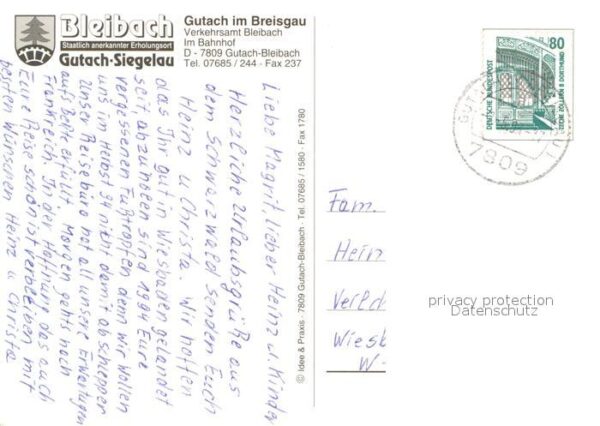 Bleibach
Staatlich anerkannter Erholungsort
Gutach-Siegelau
Gutach im Breisgau
Verkehrsamt Bleibach
Im Bahnhof
D - 7809 Gutach-Bleibach
Tel. 07685 / 244 - Fax 237
Liebe Magrit, lieber Heinz u. Kinder
Herzliche Urlaubsgrüße aus
dem Schwarzwald senden Euch
Heinz u Christa. Wir hoffen
das Ihr gut in Wiesbaden gelandet
seit, abzuholen sind 1994 Eure
vergessenen Fußtropfen denn wir wollen
uns im Herbst 94 nicht damit abschleppen
Unser Reisebüro hat all unsere Erwartungen
aufs Beste erfüllt. Morgen gehts noch
Frankreich. In der Hoffnung das auch
Eure Reise schön ist verbleiben mit
besten Wünschen Heinz u Christa
© Idee & Praxis · 7809 Gutach-Bleibach · Tel. 07685 / 1580 · Fax 1780
80
DEUTSCHE BUNDESPOST
ZECHE ZOLLERN II DORTMUND
7809
Fam.
Hein
Verld
Wiesb
W-
privacy protection
Datenschutz